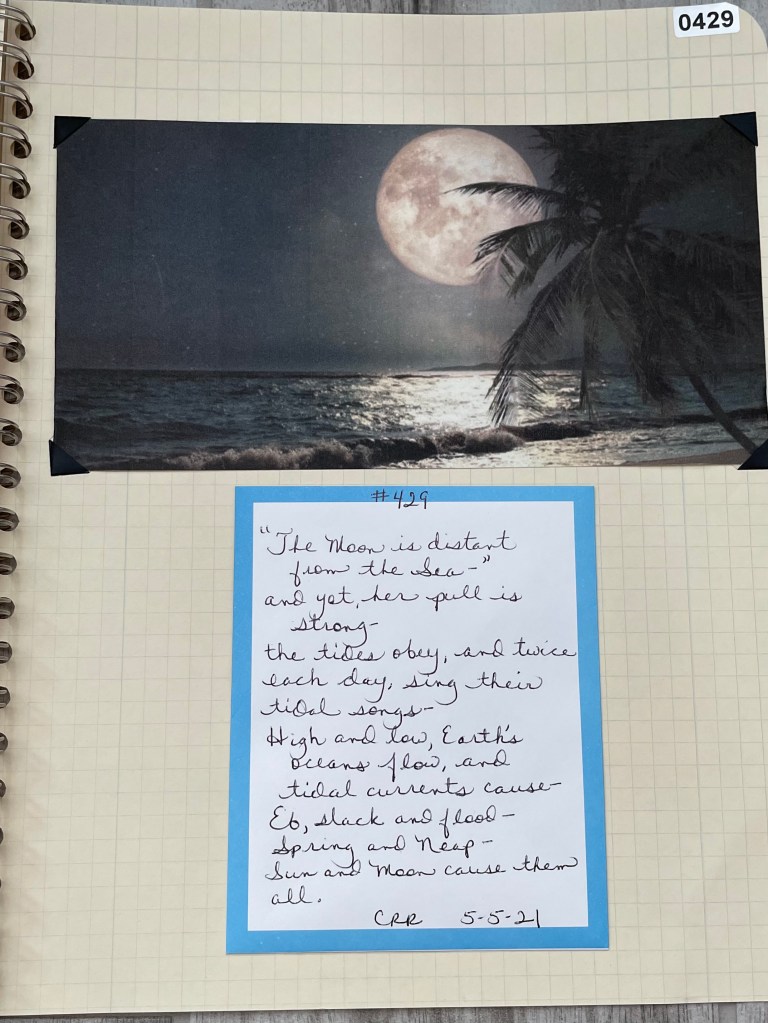 0429
#429
"The Moon is distant
from the Sea-"
and yet, her pull is
strong-
the tides obey, and twice
each day, sing their
tidal songs-
High and low, Earth's
oceans flow, and
tidal currents cause-
Eb, slack and flood-
Spring and Neap-
Sun and Moon cause them
all.
CRR 5-5-21